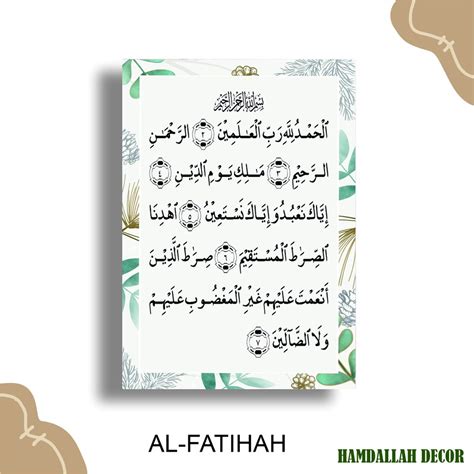 بِسْمِ اللَّهِ الرَّحْمَٰنِ الرَّحِيمِ
ٱلْحَمْدُ لِلَّهِ رَبِّ ٱلْعَـٰلَمِينَ ٢ ٱلرَّحْمَـٰنِ
ٱلرَّحِيمِ ٣ مَـٰلِكِ يَوْمِ ٱلدِّينِ ٤
إِيَّاكَ نَعْبُدُ وَإِيَّاكَ نَسْتَعِينُ ٥ ٱهْدِنَا
ٱلصِّرَٰطَ ٱلْمُسْتَقِيمَ ٦ صِرَٰطَ ٱلَّذِينَ
أَنْعَمْتَ عَلَيْهِمْ غَيْرِ ٱلْمَغْضُوبِ عَلَيْهِمْ
وَلَا ٱلضَّآلِّينَ ٧
AL-FATIHAH
HAMDALLAH DECOR